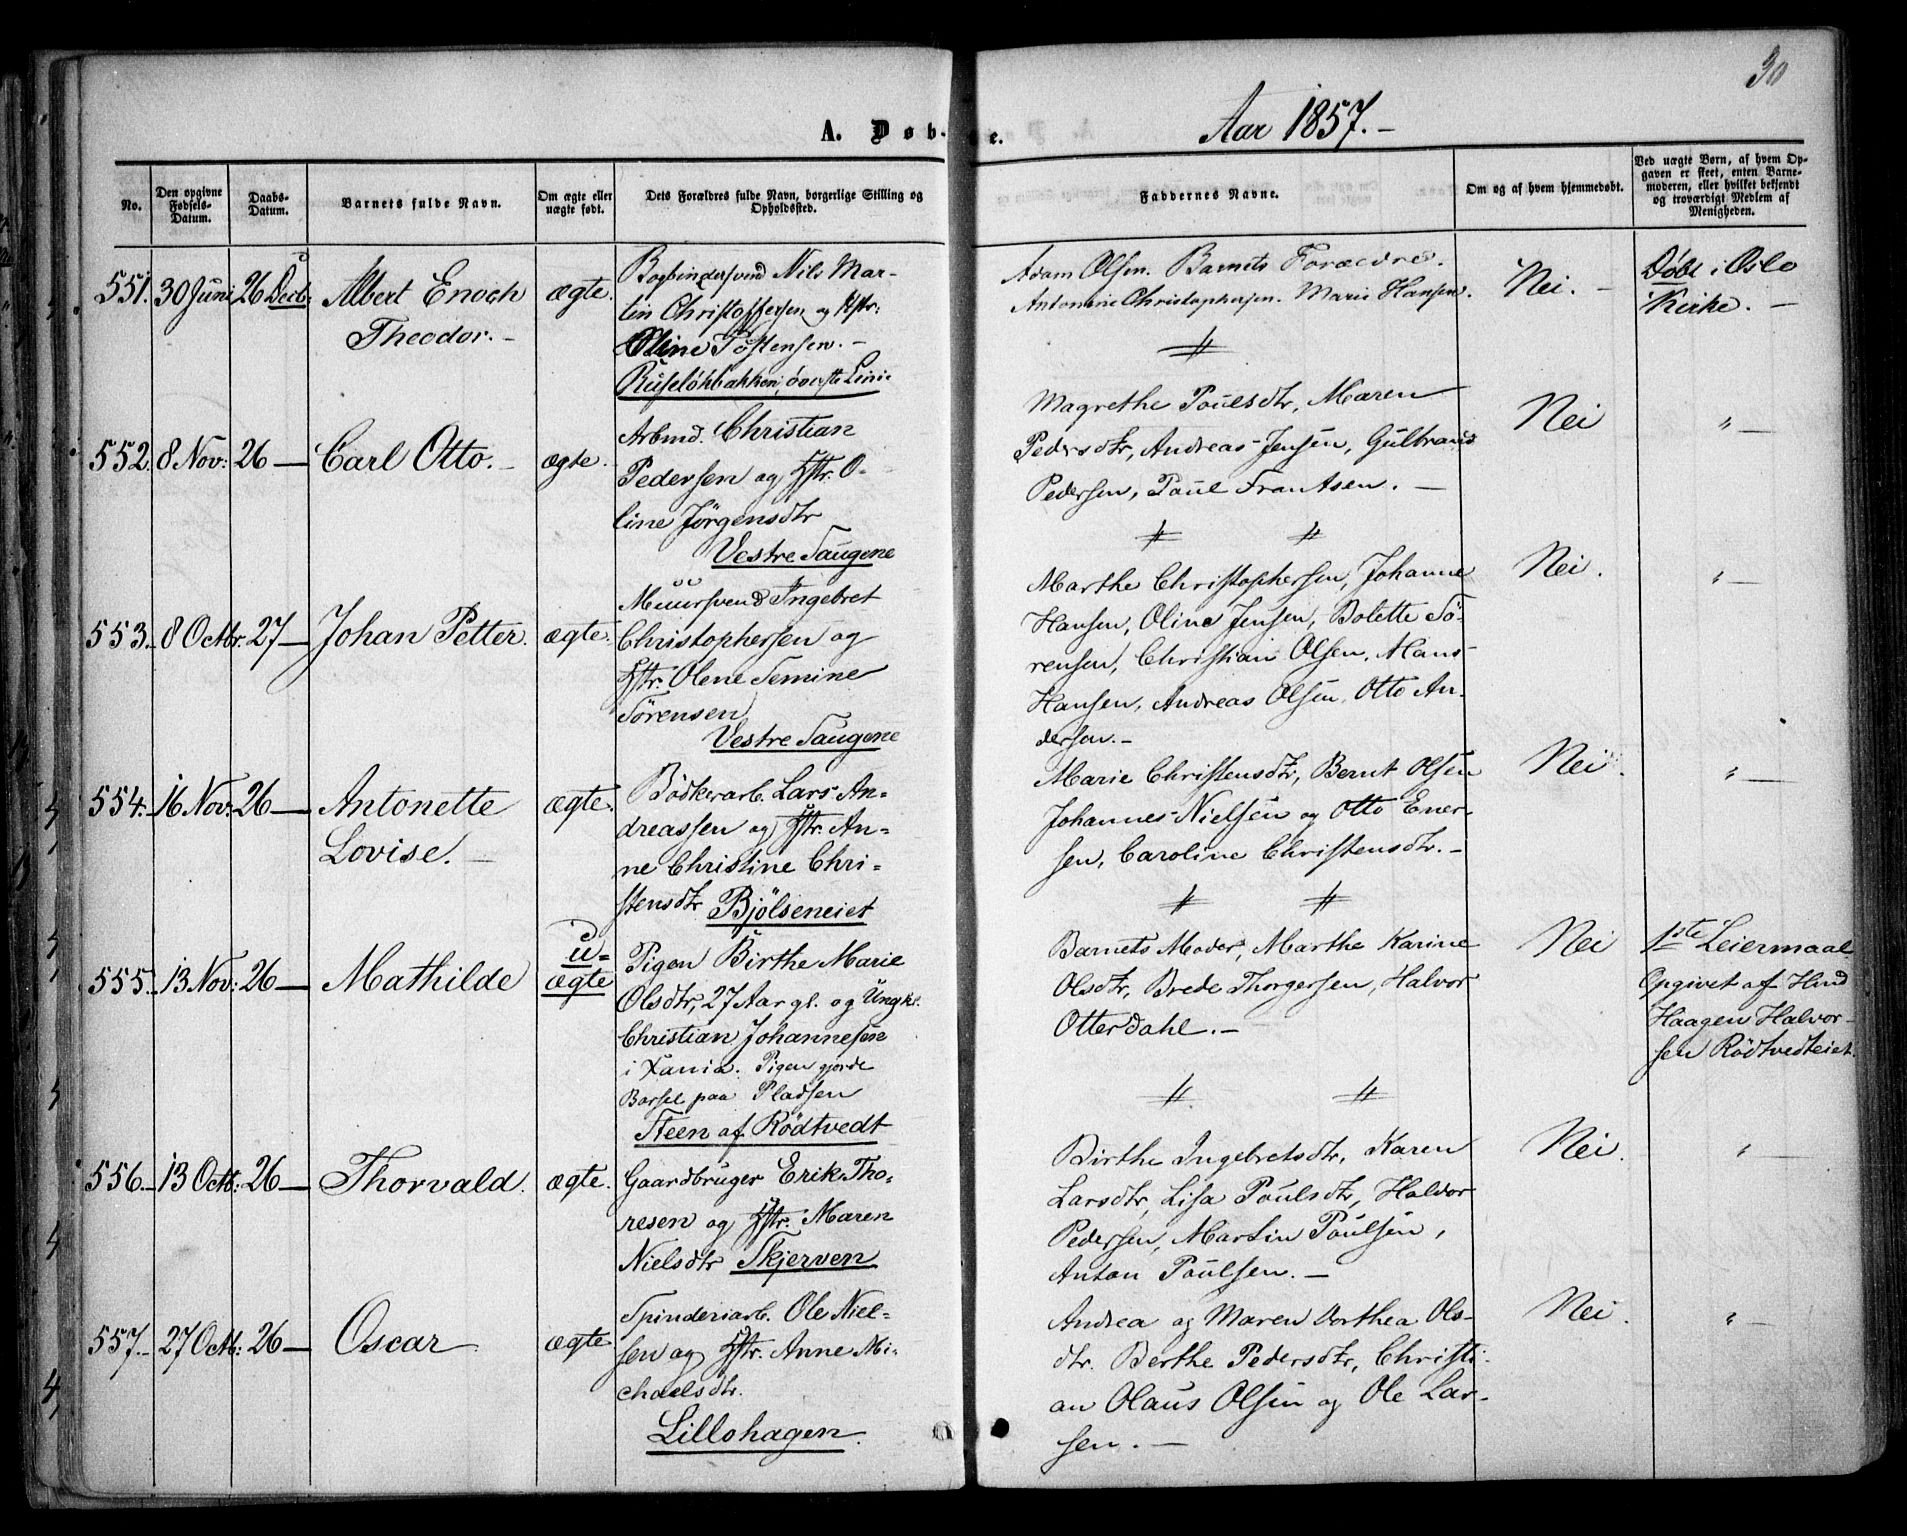 30
Aar 1857.-
A. Døb-te.
No.
Den opgivne Fødsels-Datum.
Daabs-Datum.
Barnets fulde Navn.
Om ægte eller uægte født.
Dets Forældres fulde Navn, borgerlige Stilling og Opholdssted.
Faddernes Navne.
Om og af hvem hjemmedøbt.
Ved uægte Børn, af hvem Opgaven er skeet, enten Barnemoderen, eller hvilket bekjendt og troværdigt Medlem af Menigheden.
551. 30 Juni 26 Decb: Albert Enoch
Theodor. -
ægte.
Bogbindersvend Nils Mar-
tin Christoffersen og Hstr:
Oline Tostensen. -
Ruseløkbakken, överste Linie
Adam Olsen. Barnets Forældre.
Antonine Christophersen. Marie Hansen.
Nei. -
Döbt i Oslo
Kirke. -
552. 8 Nov: 26 — Carl Otto. -
ægte.
Arbmd. Christian
Pedersen og Hstr. O-
line Jörgensdtr
Vestre Taugene
Magrethe Poulsdtr, Maren
Pedersdtr, Andreas Jensen, Gulbrand
Pedersen, Poul Frantsen. —
Nei
" —
553. 8 Octbr. 27 — Johan Petter.
ægte.
Muursvend Ingebret
Christophersen og
Hstr. Olene Semine
Sörensen
Vestre Taugene
Marthe Christophersen, Johanne
Hansen, Oline Jensen, Bolette Sö-
rensen, Christian Olsen, Hans
Hansen, Andreas Olsen, Otto An-
dersen. -
Nei.
" —
554. 16 Nov: 26 — Antonette
Lovise. —
ægte.
Bödkerarb. Lars An-
dreassen og Hstr. An-
ne Christine Chri-
stensdtr Bjölseneiet
Marie Christensdtr, Bernt Olsen
Johannes Nielsen og Otto Ener-
sen, Caroline Christensdtr. -
Nei.
" —
555. 13 Nov: 26 — Mathilde
u-
ægte
Pigen Birthe Marie
Olsdtr, 27 Aar gl. og Ungkl.
Christian Johannesen
i Xania. Pigen gjorde
Barsel paa Pladsen
Steen af Rödtvedt
Barnets Moder, Marthe Karine
Olsdtr, Brede Thorgersen, Halvor
Otterdahl. -
Nei
1ste Leiermaal
Opgivet af Hmd
Haagen Halvor-
sen Rödtvedteiet.
556. 13 Octb: 26 — Thorvald.
ægte.
Gaardbruger Erik Tho-
resen og Hstr. Maren
Nielsdtr Skjerven
Birthe Ingebretsdtr, Karen
Larsdtr, Lisa Poulsdtr, Halvor
Pedersen, Martin Poulsen,
Anton Poulsen. —
Nei.
" —
557. 27 Octb: 26 — Oscar
ægte
Spinderiarb. Ole Niel-
sen og Hstr. Anne Mi-
chaelsdtr.
Lillohagen.
Andrea og Maren Dorthea Ols-
dtr. Berthe Pedersdtr, Christi-
an Olaus Olsen og Ole Lar-
sen. —
Nei.
" —